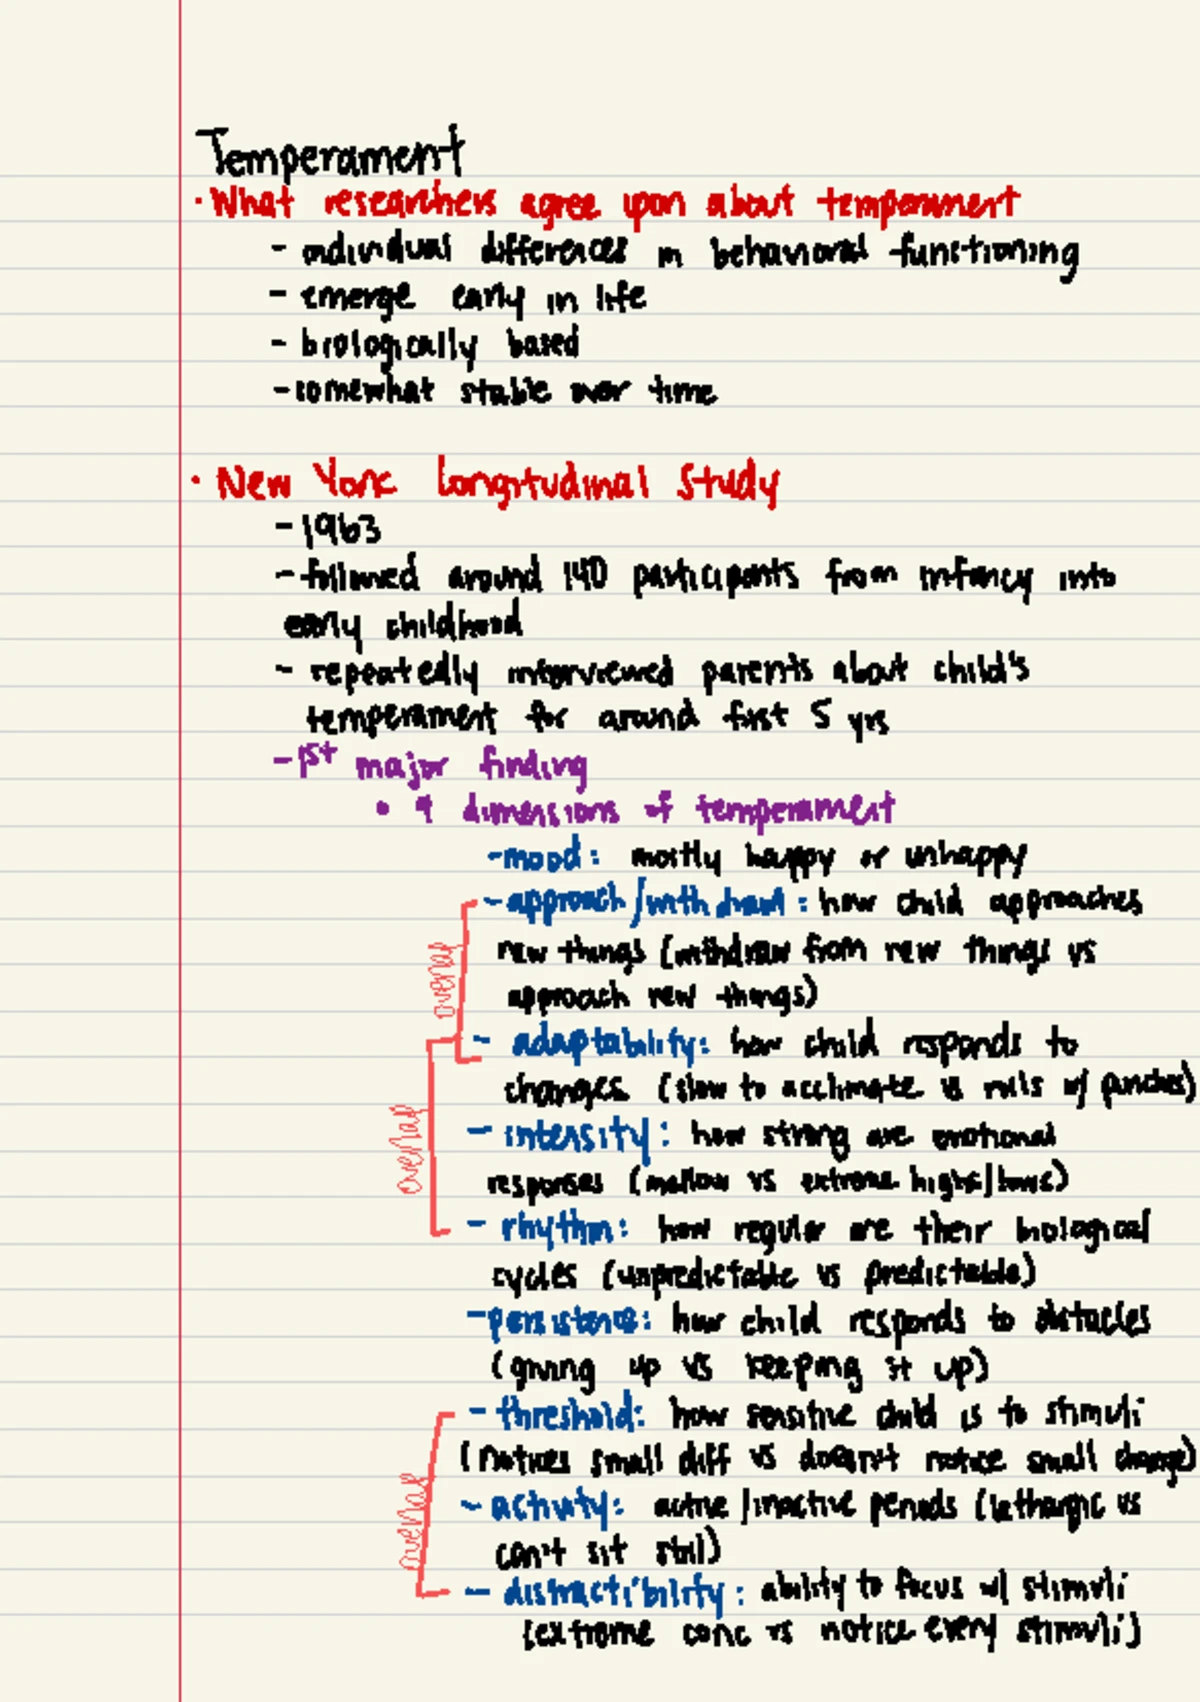 Temperament
· What researchers agree upon about temperament
- individual differences in behavioral functioning
- emerge early in life
- biologically based
- somewhat stable over time
· New York Longitudinal Study
- 1963
- followed around 140 participants from infancy into
early childhood
- repeatedly interviewed parents about child's
temperament for around first 5 yrs
- 1st major finding
• 9 dimensions of temperament
- mood: mostly happy or unhappy
- approach/withdrawl: how child approaches
new things (withdraw from new things vs
approach new things)
overlap
- adaptability: how child responds to
changes (slow to acclimate vs rolls w/ punches)
overlap
- intensity: how strong are emotional
responses (mellow vs extreme highs/lows)
- rhythm: how regular are their biological
cycles (unpredictable vs predictable)
- persistence: how child responds to obstacles
(giving up vs keeping it up)
- threshold: how sensitive child is to stimuli
(notices small diff vs doesn't notice small change)
overlap
- activity: active/inactive periods (lethargic vs
can't sit still)
- distractibility: ability to focus w/ stimuli
(extreme conc vs notice every stimuli)